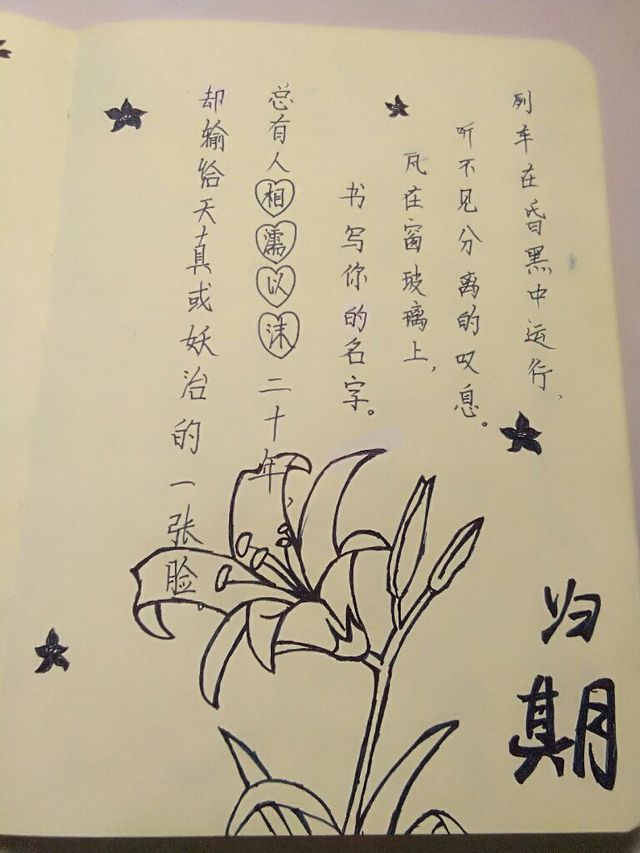 列车在昏黑中运行，
听不见分离的叹息。
凡在窗玻璃上，
书写你的名字。
总有人相濡以沫二十年，
却输给天真或妖治的一张脸
归期